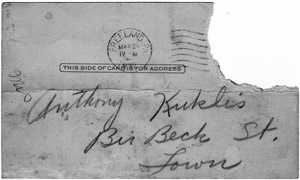 FREELAND, PA.
MAR 2
12 M
THIS SIDE OF CARD IS FOR ADDRESS
Anthony Kuklis
Bir Beck St.
Town